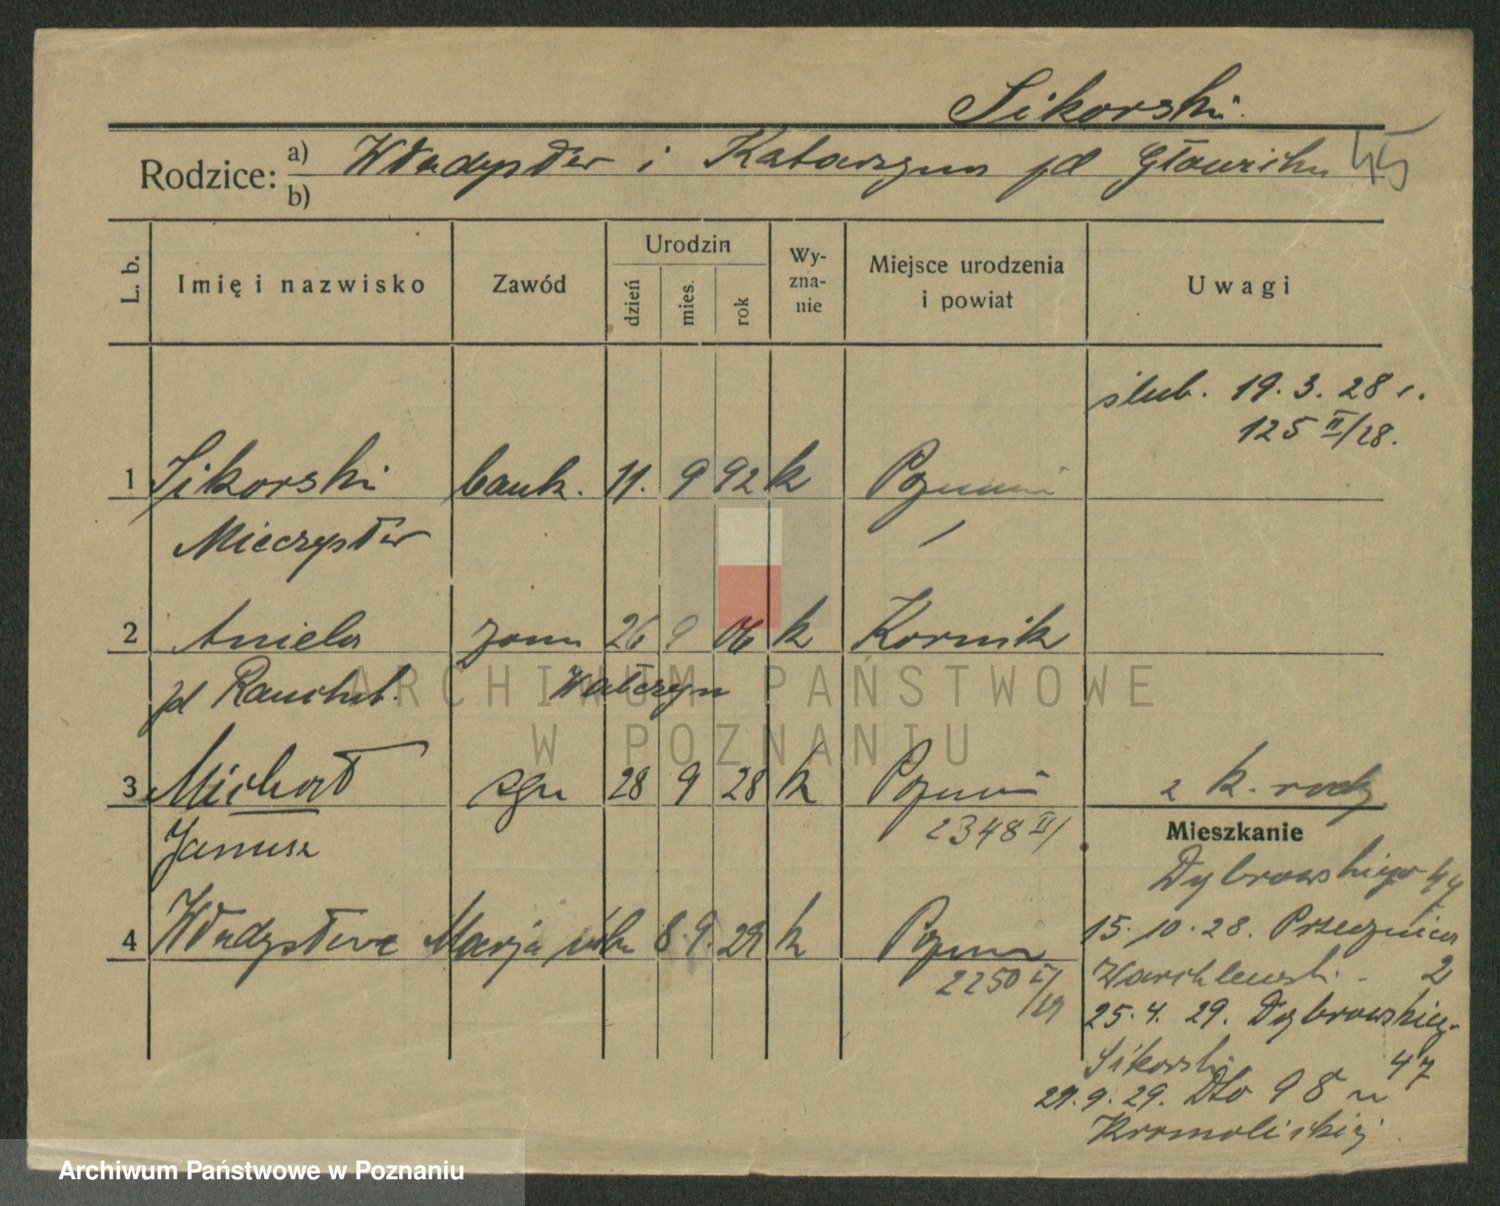 Sikorski
Rodzice: a) Władysław i Katarzyna zd
b)
L. b. Imię i nazwisko Zawód Urodzin dzień mies. rok Wy-zna-nie Miejsce urodzenia i powiat Uwagi
ślub. 19. 3. 28 r.
125 II/28.
1 Sikorski bank. 11. 9 92 k Poznań
Mieczysław
2 Aniela żona 26 9 06 k Kornik
zd
3 Michał syn 28 9 28 k Poznań
Janusz 2348 II/
z k. rodz
Mieszkanie
4 Władysława Marja córka 8. 9. 29 k Poznań
2250 /29
Dąbrowskiego
15. 10. 28. Przecznica
2
25. 4. 29. Dąbrowskieg.
Sikorski 47
29. 9. 29. Dto 98 u
ARCHIWUM PAŃSTWOWE
W POZNANIU
Archiwum Państwowe w Poznaniu